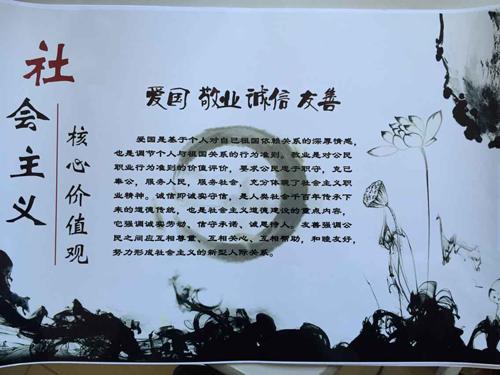 社会主义
核心价值观
爱国 敬业 诚信 友善
爱国是基于个人对自己祖国依赖关系的深厚情感，
也是调节个人与祖国关系的行为准则。敬业是对公民
职业行为准则的价值评价，要求公民忠于职守，克己
奉公，服务人民，服务社会，充分体现了社会主义职
业精神。诚信即诚实守信，是人类社会千百年传承下
来的道德传统，也是社会主义道德建设的重点内容，
它强调诚实劳动、信守承诺、诚恳待人。友善强调公
民之间应互相尊重、互相关心、互相帮助，和睦友好，
努力形成社会主义的新型人际关系。